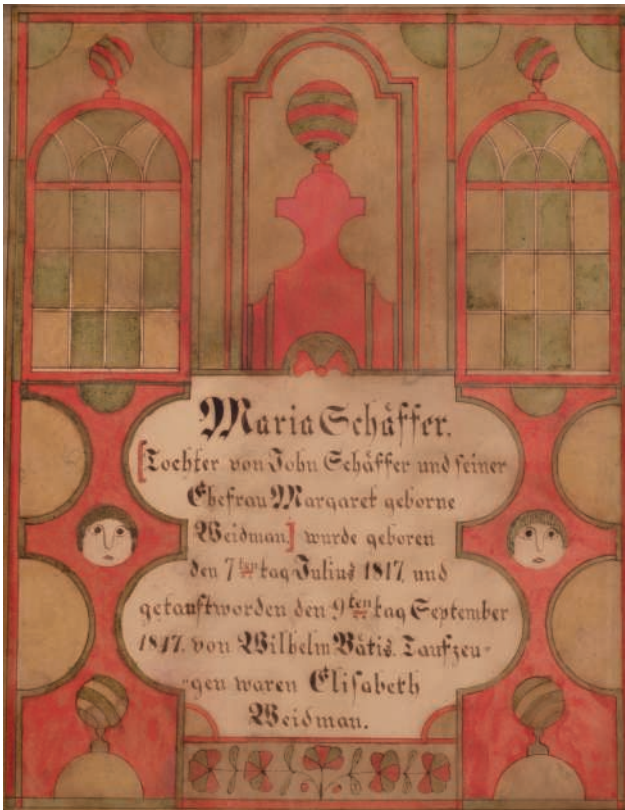 Maria Schäffer.
[Tochter von John Schäffer und seiner
Ehefrau Margaret geborne
Weidman] wurde geboren
den 7ten tag Julius 1817, und
getauft worden den 9ten tag September
1817. von Wilhelm Bätis. Taufzeu-
-gen waren Elisabeth
Weidman.